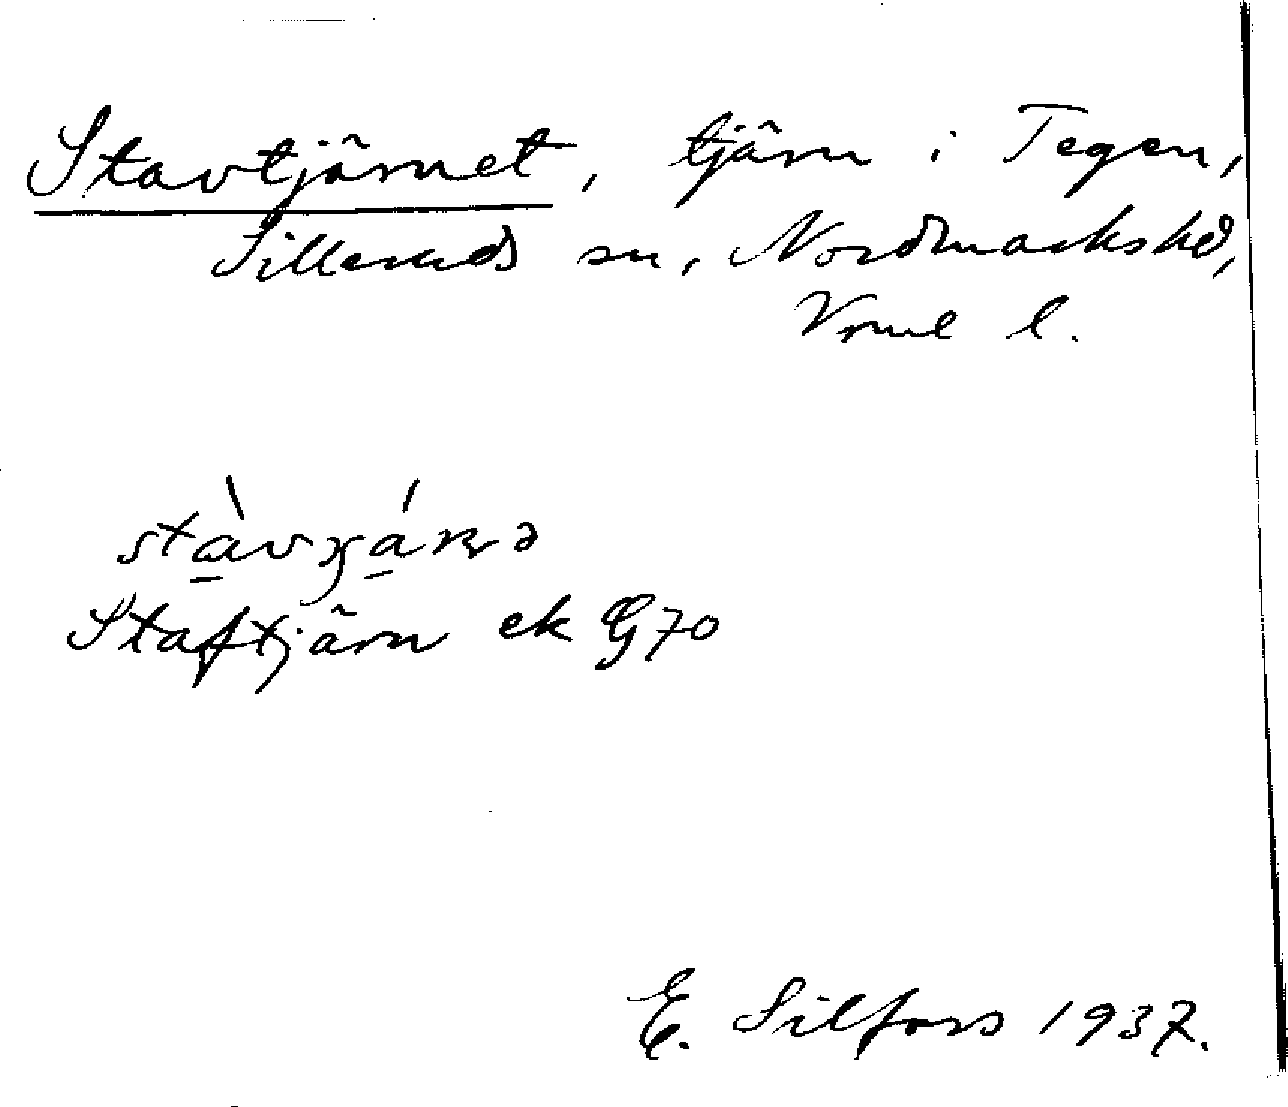 Stavtjärnet, tjärn i Tegen,
Silleruds sn, Nordmarks hd,
Vrml l.
Staftjärn ek G70
E. Silfors 1937.